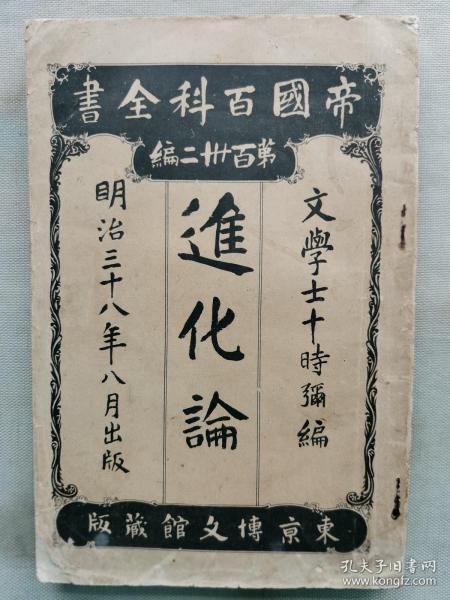 帝國百科全書
第百卅二編
文學士十時彌編
進化論
明治三十八年八月出版
東京博文館藏版
孔夫子旧书网
www.kongfz.com